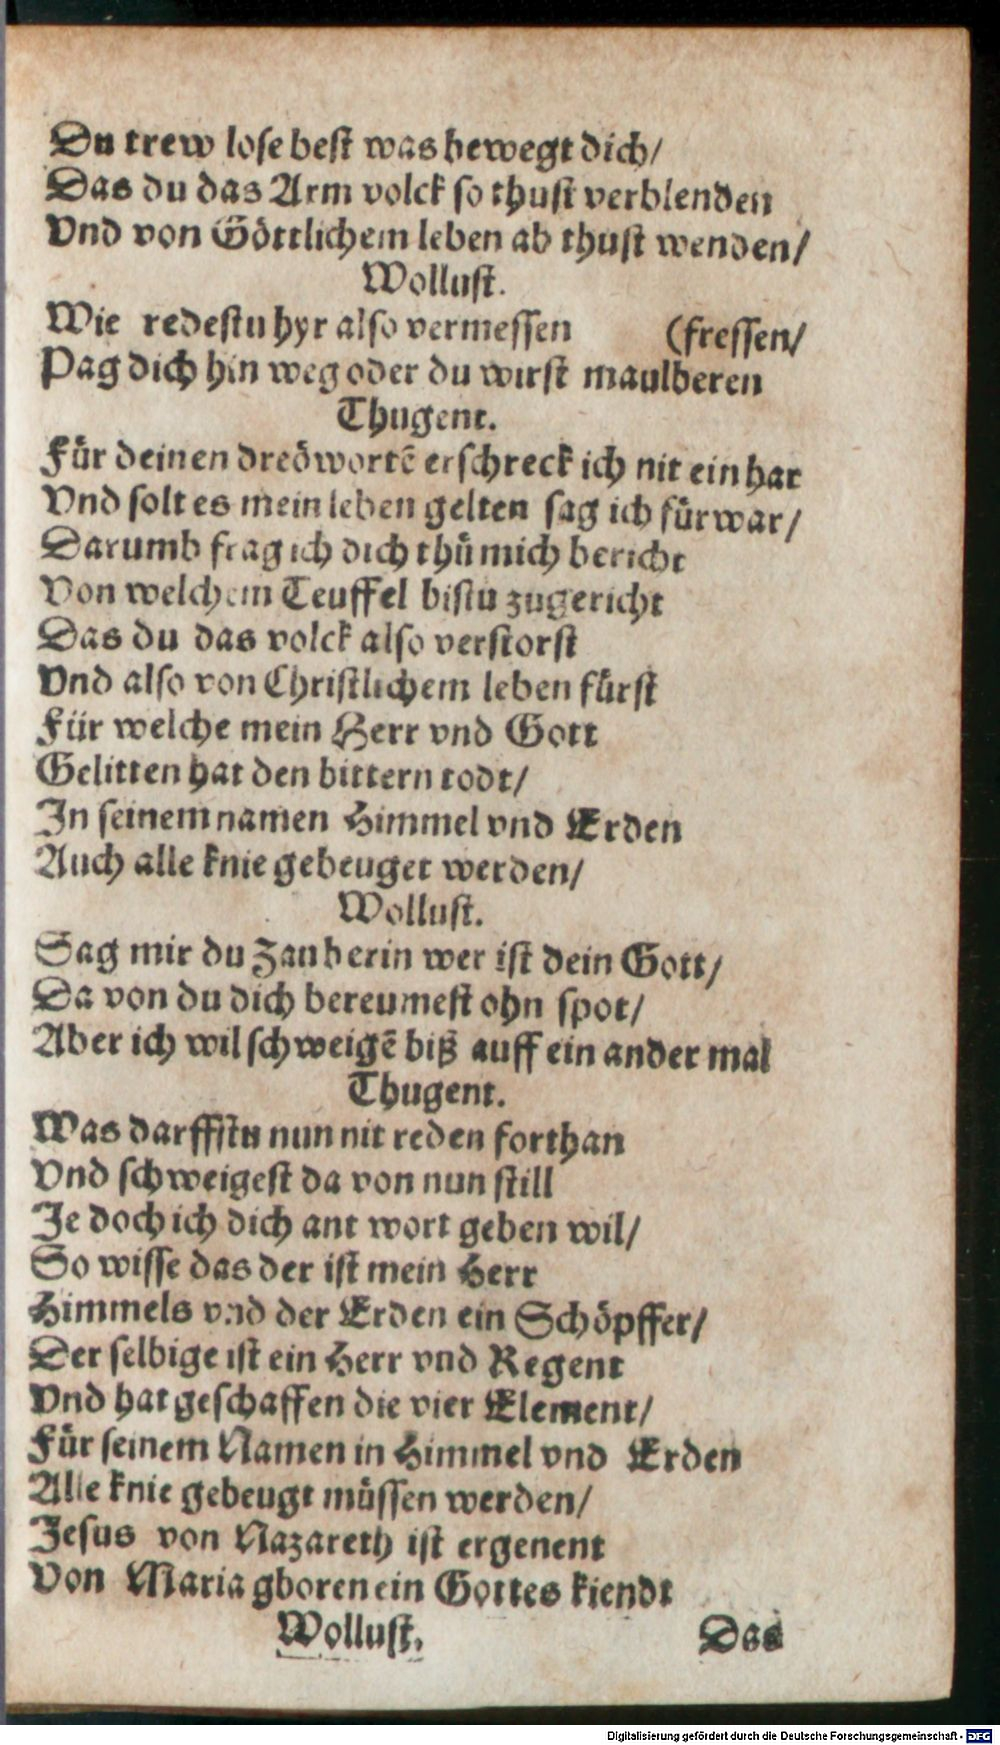 Du trew lose best was bewegt dich/
Das du das Arm volck so thust verblenden
Vnd von Göttlichem leben ab thust wenden/
Wollust.
Wie redestu hyr also vermessen (fressen/
Pag dich hin weg oder du wirst maulberen
Thugent.
Für deinen dreöwortē erschreck ich nit ein har
Vnd solt es mein leben gelten sag ich fürwar/
Darumb frag ich dich thů mich bericht
Von welchem Teuffel bistu zugericht
Das du das volck also verstorst
Vnd also von Christlichem leben fürst
Für welche mein Herr vnd Gott
Gelitten hat den bittern todt/
In seinem namen Himmel vnd Erden
Auch alle knie gebeuget werden/
Wollust.
Sag mir du Zauberin wer ist dein Gott/
Da von du dich bereumest ohn spot/
Aber ich wil schweigē biß auff ein ander mal
Thugent.
Was darffstu nun nit reden forthan
Vnd schweigest da von nun still
Je doch ich dich ant wort geben wil/
So wisse das der ist mein Herr
Himmels vnd der Erden ein Schöpffer/
Der selbige ist ein Herr vnd Regent
Vnd hat geschaffen die vier Element/
Für seinem Namen in Himmel vnd Erden
Alle knie gebeugt müssen werden/
Jesus von Nazareth ist ergenent
Von Maria gboren ein Gottes kiendt
Wollust. Das
Digitalisierung gefördert durch die Deutsche Forschungsgemeinschaft - DFG